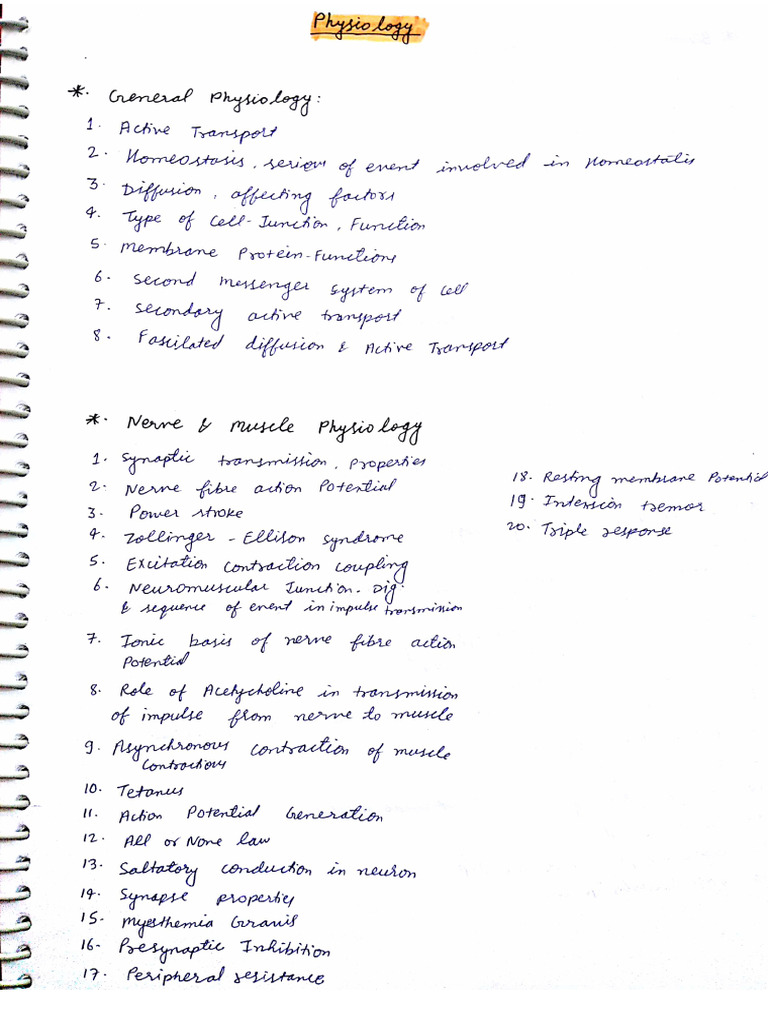 Physiology
*. General Physiology:
1. Active Transport
2. Homeostasis, serious of event involved in Homeostatis
3. Diffusion, affecting factors
4. Type of Cell-Junction, Function
5. Membrane Protein-Functions
6. Second Messenger System of Cell
7. Secondary active transport
8. Fascilated diffusion & Active Transport
*. Nerve & Muscle Physiology
1. Synaptic transmission, Properties
2. Nerve fibre action Potential
3. Power stroke
4. Zollinger-Ellison Syndrome
5. Excitation Contraction Coupling
6. Neuromuscular Junction. Dig.
& sequence of event in impulse transmission
7. Ionic basis of nerve fibre action
Potential
8. Role of Acetycholine in transmission
of impulse from nerve to muscle
9. Asynchronous contraction of muscle
Contractions
10. Tetanus
11. Action Potential Generation
12. All or None law
13. Saltatory conduction in neuron
14. Synapse properties
15. Myesthemia Gravis
16. Presynaptic Inhibition
17. Peripheral resistance
18. Resting membrane Potential
19. Intension tremor
20. Triple response